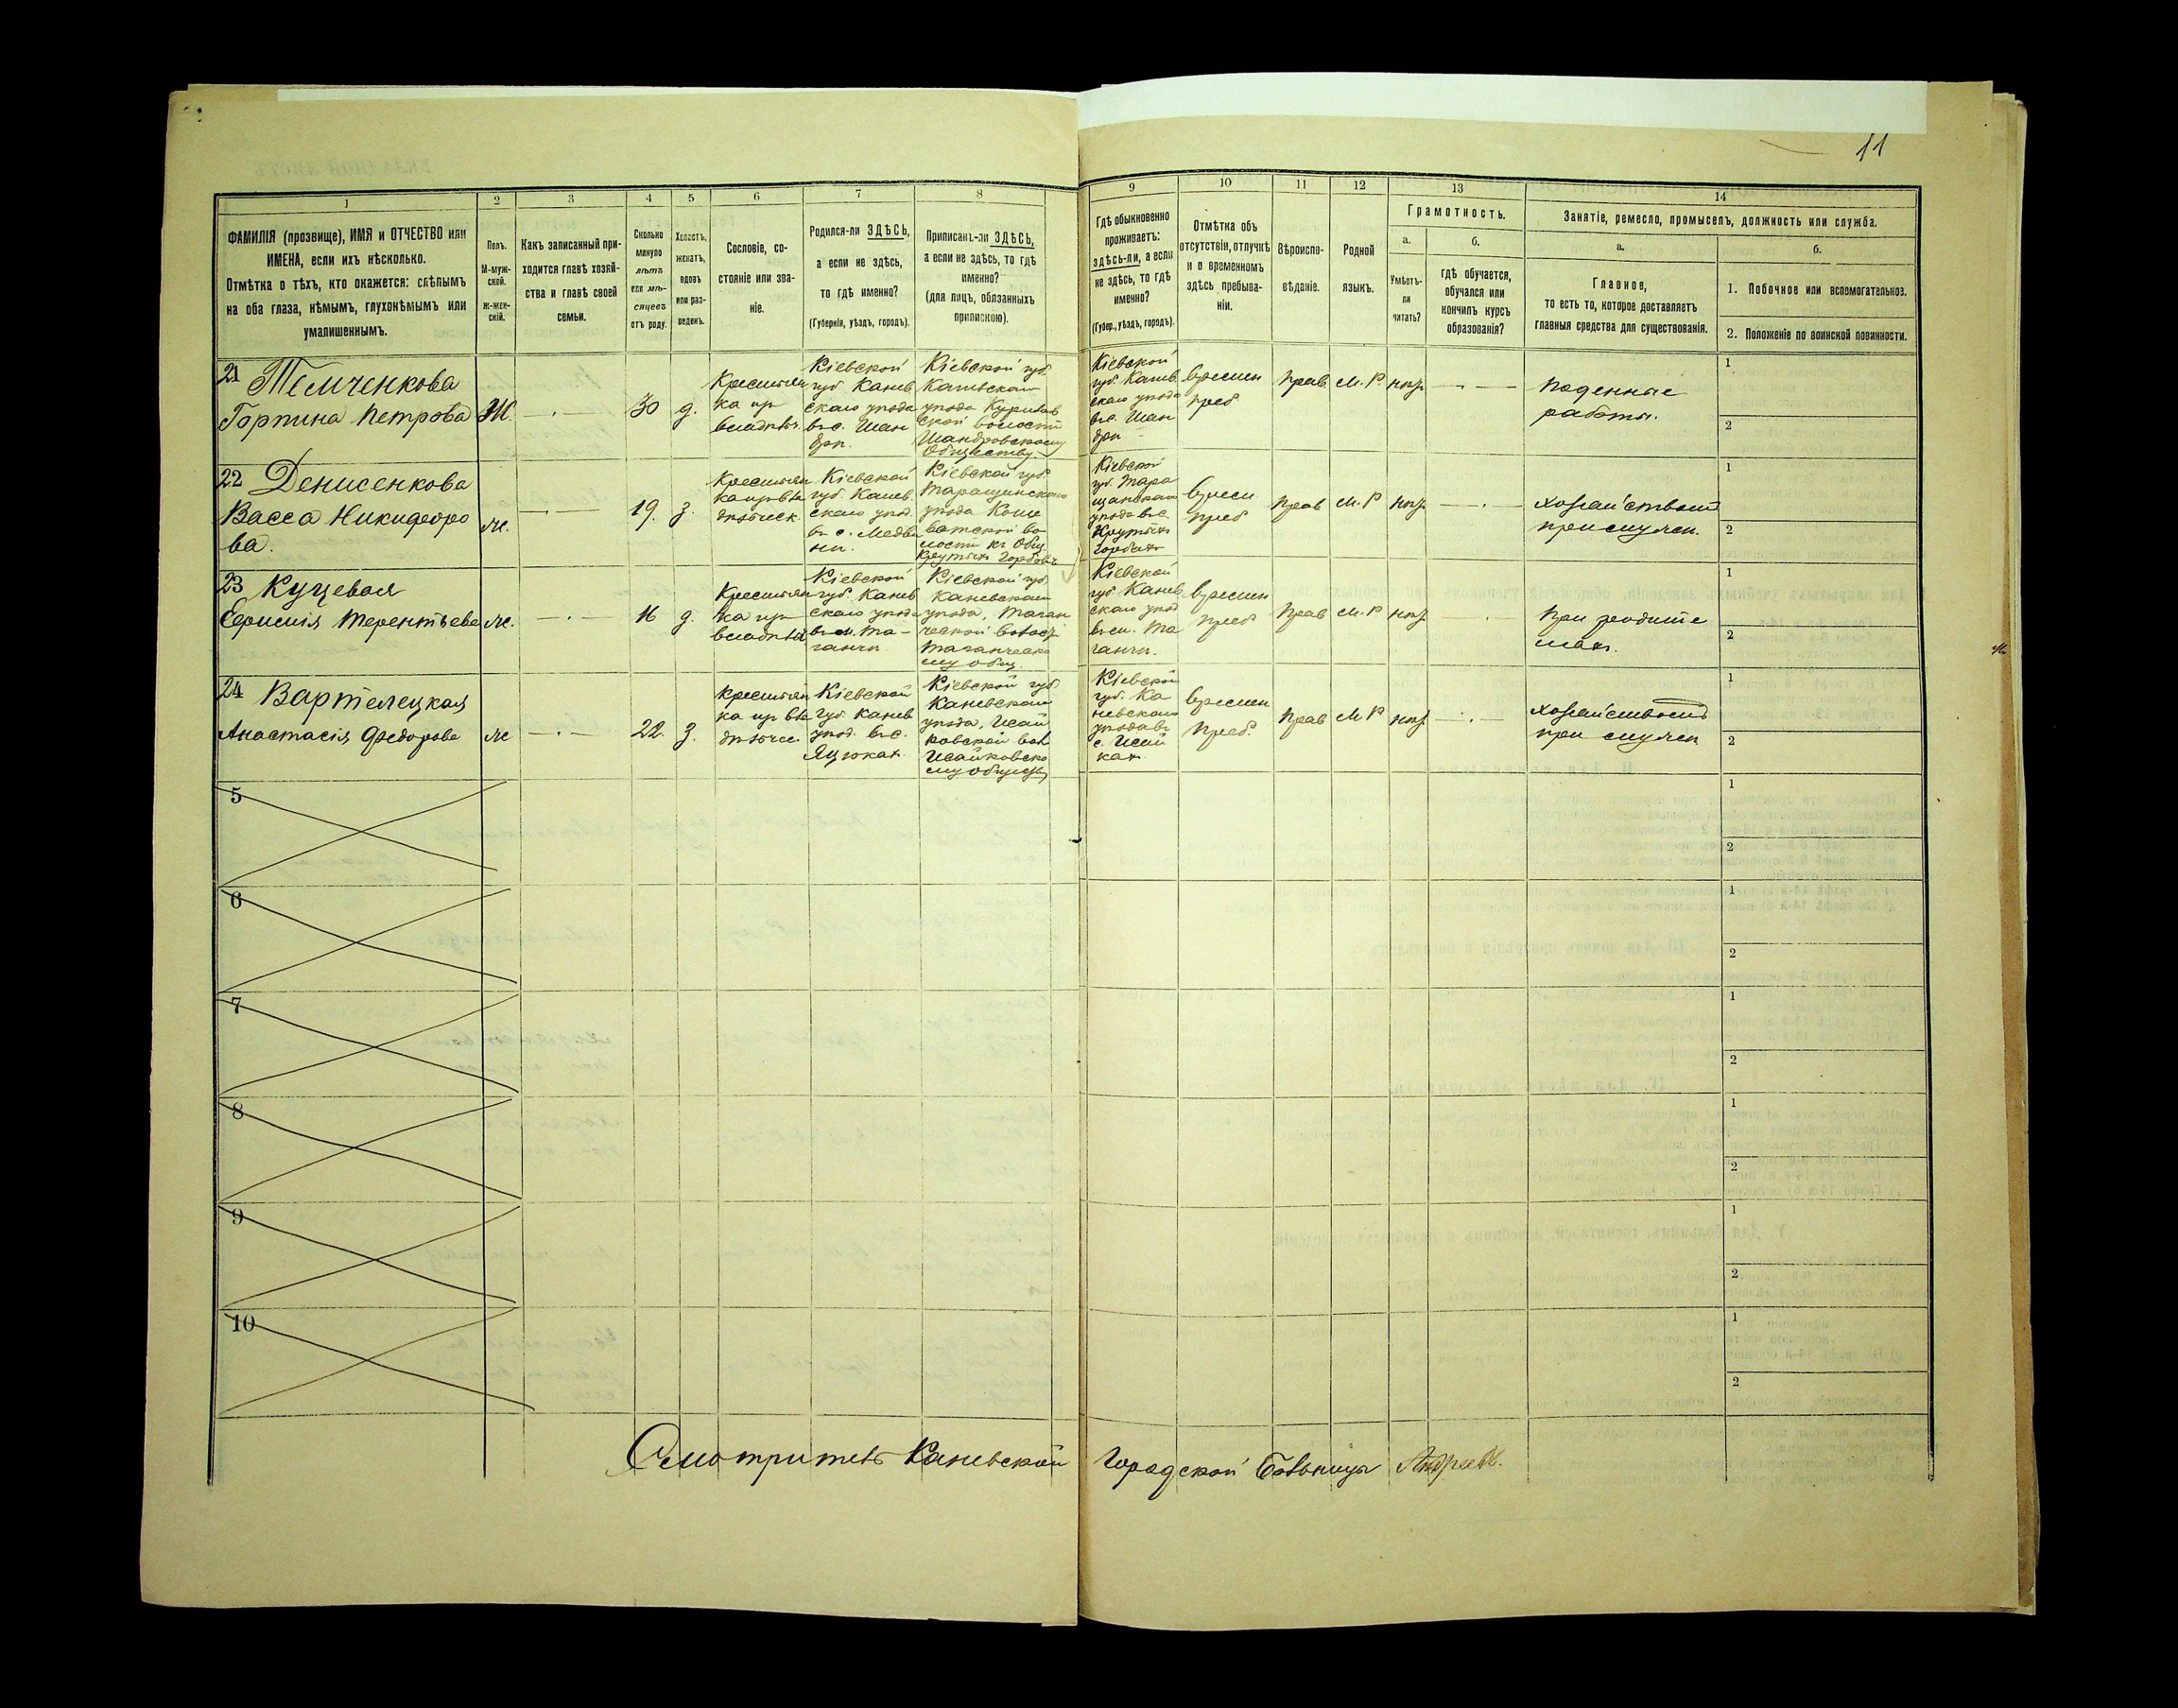 11
1
2
3
4
5
6
7
8
9
10
11
12
13
14
ФАМИЛІЯ (прозвище), ИМЯ и ОТЧЕСТВО или
ИМЕНА, если ихъ нѣсколько.
Отмѣтка о тѣхъ, кто окажется: слѣпымъ
на оба глаза, нѣмымъ, глухонѣмымъ или
умалишеннымъ.
Полъ.
М-муж-
ской.
ж-жен-
скій.
Какъ записанный при-
ходится главѣ хозяй-
ства и главѣ своей
семьи.
Сколько
минуло
лѣтъ
или мѣ-
сяцевъ
отъ роду.
Холостъ,
женатъ,
вдовъ
или раз-
веденъ.
Сословіе, со-
стояніе или зва-
ніе.
Родился-ли ЗДѢСЬ,
а если не здѣсь,
то гдѣ именно?
(Губернія, уѣздъ, городъ).
Приписанъ-ли ЗДѢСЬ,
а если не здѣсь, то гдѣ
именно?
(для лицъ, обязанныхъ
припискою).
Гдѣ обыкновенно
проживаетъ:
здѣсь-ли, а если
не здѣсь, то гдѣ
именно?
(Губер., уѣздъ, городъ).
Отмѣтка объ
отсутствіи, отлучкѣ
и о временномъ
здѣсь пребыва-
ніи.
Вѣроиспо-
вѣданіе.
Родной
языкъ.
Грамотность.
а.
Умѣетъ-
ли
читать?
б.
гдѣ обучается,
обучался или
кончилъ курсъ
образованія?
Занятіе, ремесло, промыселъ, должность или служба.
а.
Главное,
то есть то, которое доставляетъ
главныя средства для существованія.
б.
1. Побочное или вспомогательное.
2. Положеніе по воинской повинности.
21 Темченкова
Горпина Петрова
Ж.
30
д.
Крестьян
ка
Кіевской
губ. Канев
скаго уѣзда
въ с. Шан
дрѣ.
Кіевской губ.
Каневскаго
уѣзда
ской волости
Шандровскому
Обществу.
Кіевской
губ. Канев
скаго уѣзда
въ с. Шан
дрѣ
времен
преб
прав
М. Р.
нѣт
Поденные
работы.
1
2
22 Денисенкова
Васса Никифоро
ва.
ж.
19.
з.
Крестьян
Кіевской
губ. Канев
скаго уѣзд.
въ с. Медви
нѣ.
Кіевской губ.
Таращинскаго
уѣзда Коше
ватской во-
лости къ Общ
Крутыхъ Горбовъ
Кіевской
губ. Тара
щанскаго
уѣзда въ с.
Крутыхъ
Горбахъ
времен
преб
прав
М. Р
нѣт
хозяйством
при мужѣ.
1
2
23 Куцевая
Ефимія Терентьева
ж.
16
д.
Крестьян
ка
Кіевской
губ. Канев
скаго уѣзда
въ м. Та-
ганчѣ.
Кіевской губ.
Каневскаго
уѣзда, Таган
ческой волос.
Таганческо
му общ.
Кіевской
губ. Канев
скаго уѣзд
въ м. Та
ганчѣ.
времен
преб
прав
М. Р
нѣт
При родите
ляхъ.
1
2
24 Вартелецкая
Анастасія Федорова
ж
22.
з.
Крестьян
Кіевской
губ. Канев
уѣзд. въ с.
Яцюках
Кіевской губ.
Каневскаго
уѣзда, Исай
ковской вол
Исайковско
му обществу
Кіевской
губ. Ка
невскаго
уѣзда въ
с. Исай
ках
времен
преб.
прав
М Р
нѣт
хозяйством
при мужѣ
1
2
5
1
2
6
1
2
7
1
2
8
1
2
9
1
2
10
1
2
Смотритель Каневской Городской Больницы